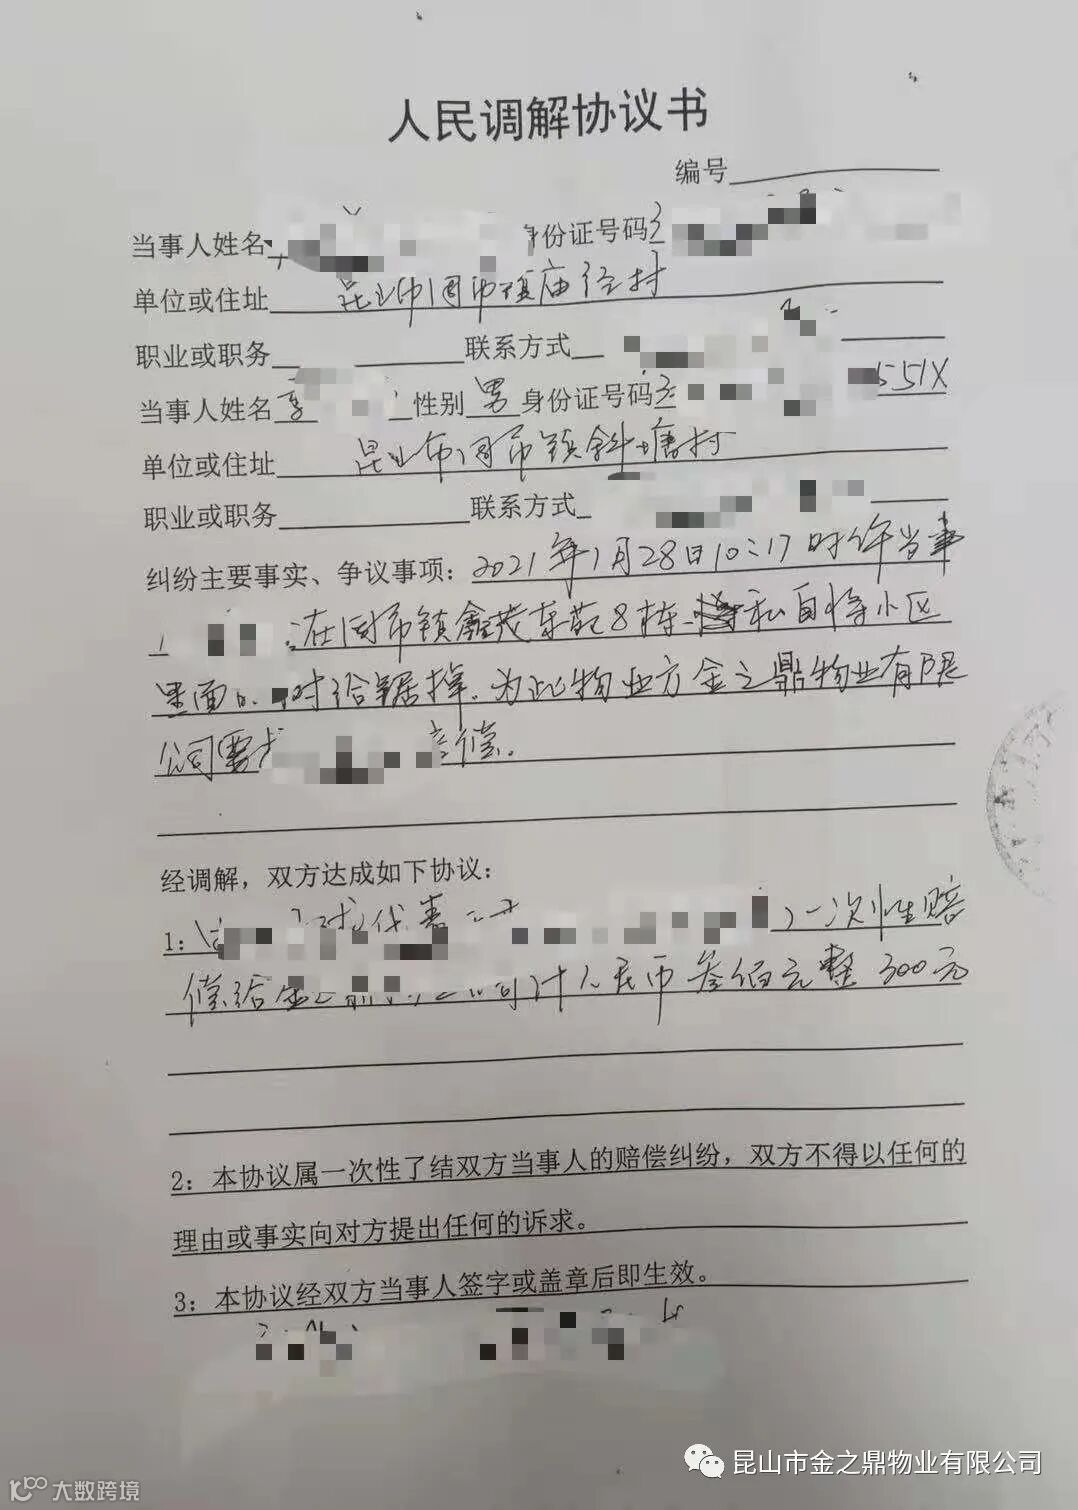 人民调解协议书
编号
当事人姓名 身份证号码3
单位或住址 昆山市周市镇庙泾村
职业或职务 联系方式
当事人姓名 性别 男 身份证号码3 551X
单位或住址 昆山市周市镇斜塘村
职业或职务 联系方式
纠纷主要事实、争议事项：2021年1月28日10:17时许当事
人 在周市镇鑫茂东苑8栋 私自将小区
里面的 树给锯掉.为此物业方金之鼎物业有限
公司要求 赔偿.
经调解，双方达成如下协议：
1： 代表 一次性赔
偿给金之鼎 公司计人民币叁佰元整 300元
2：本协议属一次性了结双方当事人的赔偿纠纷，双方不得以任何的
理由或事实向对方提出任何的诉求。
3：本协议经双方当事人签字或盖章后即生效。
昆山市金之鼎物业有限公司
大数跨境